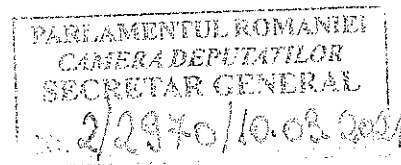 PARLAMENTUL ROMANIEI
CAMERA DEPUTATILOR
SECRETAR GENERAL
2/2970/10.03.2021